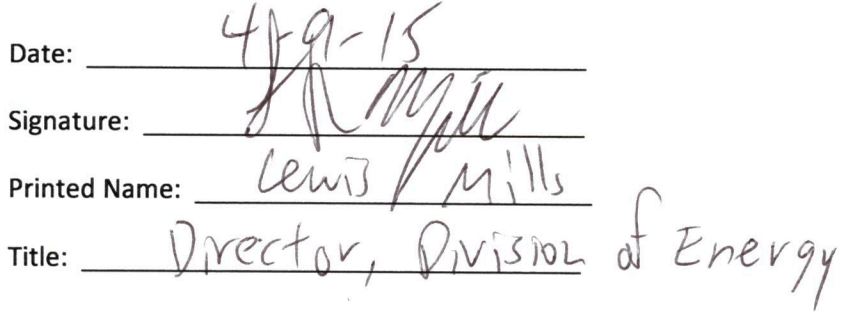 Date: 4-9-15
Signature:
Printed Name: Lewis Mills
Title: Director, Division of Energy